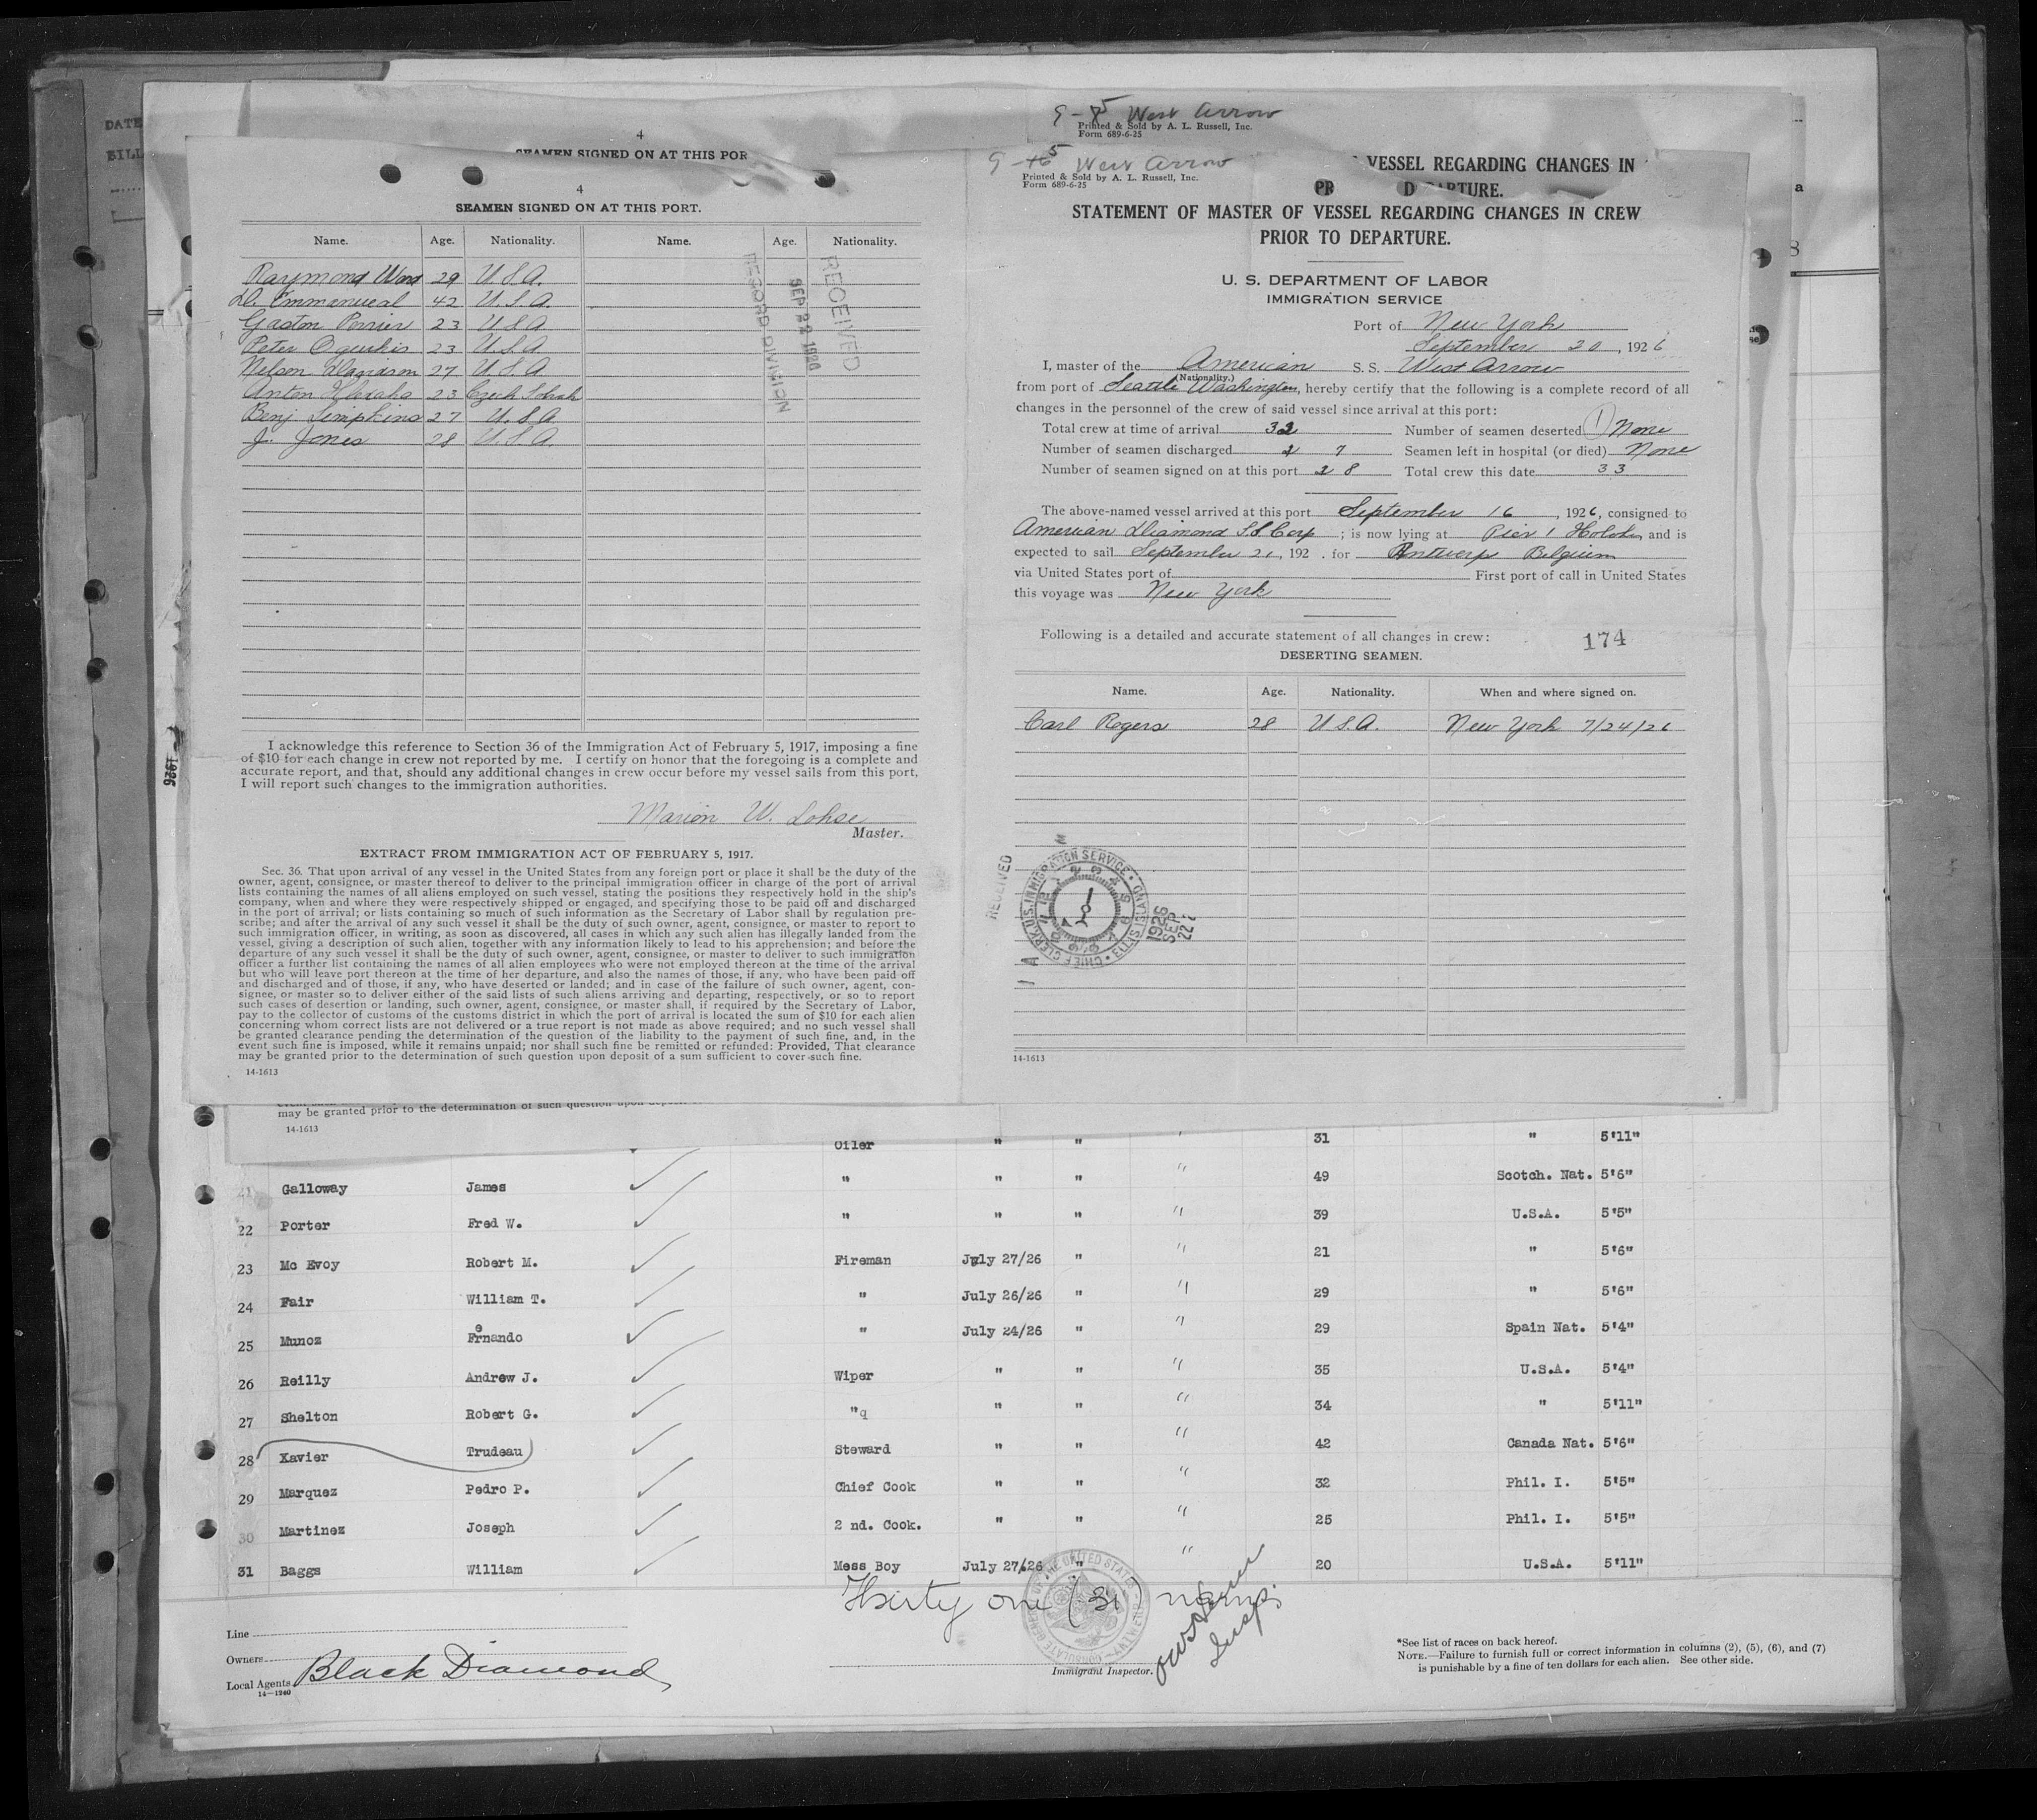 DATE
BILL
9-5 West Arrow
Printed & Sold by A. L. Russell, Inc.
Form 689-6-25
4
SEAMEN SIGNED ON AT THIS POR
VESSEL REGARDING CHANGES IN
4
SEAMEN SIGNED ON AT THIS PORT.
Name. Age. Nationality. Name. Age. Nationality.
Raymond Wood 29 U.S.A.
D. Emmanueal 42 U.S.A.
Gaston Perrier 23 U.S.A.
Peter 23 U.S.A.
Nelson 27 U.S.A.
Anton 23 Czech Solvak
Benj Simpkins 27 U.S.A.
J. Jones 28 U.S.A.
RECORD DIVISION
SEP 22 1926
RECEIVED
I acknowledge this reference to Section 36 of the Immigration Act of February 5, 1917, imposing a fine
of $10 for each change in crew not reported by me. I certify on honor that the foregoing is a complete and
accurate report, and that, should any additional changes in crew occur before my vessel sails from this port,
I will report such changes to the immigration authorities.
Marion W. Lohse
Master.
EXTRACT FROM IMMIGRATION ACT OF FEBRUARY 5, 1917.
Sec. 36. That upon arrival of any vessel in the United States from any foreign port or place it shall be the duty of the
owner, agent, consignee, or master thereof to deliver to the principal immigration officer in charge of the port of arrival
lists containing the names of all aliens employed on such vessel, stating the positions they respectively hold in the ship's
company, when and where they were respectively shipped or engaged, and specifying those to be paid off and discharged
in the port of arrival; or lists containing so much of such information as the Secretary of Labor shall by regulation pre-
scribe; and after the arrival of any such vessel it shall be the duty of such owner, agent, consignee, or master to report to
such immigration officer, in writing, as soon as discovered, all cases in which any such alien has illegally landed from the
vessel, giving a description of such alien, together with any information likely to lead to his apprehension; and before the
departure of any such vessel it shall be the duty of such owner, agent, consignee, or master to deliver to such immigration
officer a further list containing the names of all alien employees who were not employed thereon at the time of the arrival
but who will leave port thereon at the time of her departure, and also the names of those, if any, who have been paid off
and discharged and of those, if any, who have deserted or landed; and in case of the failure of such owner, agent, con-
signee, or master so to deliver either of the said lists of such aliens arriving and departing, respectively, or so to report
such cases of desertion or landing, such owner, agent, consignee, or master shall, if required by the Secretary of Labor,
pay to the collector of customs of the customs district in which the port of arrival is located the sum of $10 for each alien
concerning whom correct lists are not delivered or a true report is not made as above required; and no such vessel shall
be granted clearance pending the determination of the question of the liability to the payment of such fine, and, in the
event such fine is imposed, while it remains unpaid; nor shall such fine be remitted or refunded: Provided, That clearance
may be granted prior to the determination of such question upon deposit of a sum sufficient to cover such fine.
14-1613
West Arrow
Printed & Sold by A. L. Russell, Inc.
Form 689-6-25
STATEMENT OF MASTER OF VESSEL REGARDING CHANGES IN CREW
PRIOR TO DEPARTURE.
U. S. DEPARTMENT OF LABOR
IMMIGRATION SERVICE
Port of New York
September 20, 1926
I, master of the American S. S. West Arrow
(Nationality.)
from port of Seattle Washington, hereby certify that the following is a complete record of all
changes in the personnel of the crew of said vessel since arrival at this port:
Total crew at time of arrival 32 Number of seamen deserted 1 None
Number of seamen discharged 7 Seamen left in hospital (or died) None
Number of seamen signed on at this port 8 Total crew this date 33
The above-named vessel arrived at this port September 16, 1926, consigned to
American Diamond S.S. Corp; is now lying at Pier 1 Hoboken and is
expected to sail September 21, 192 . for Antwerp Belgium
via United States port of First port of call in United States
this voyage was New York
Following is a detailed and accurate statement of all changes in crew: 174
DESERTING SEAMEN.
Name. Age. Nationality. When and where signed on.
Carl Rogers 28 U.S.A. New York 7/24/26
RECEIVED
CHIEF CLERK U.S. IMMIGRATION SERVICE · ELLIS ISLAND
1926 SEP 22
14-1613
may be granted prior to the determination of such question upon
14-1613
Oiler " " " 31 " 5'11"
21 Galloway James " " " " 49 Scotch. Nat. 5'6"
22 Porter Fred W. " " " " 39 U.S.A. 5'5"
23 Mc Evoy Robert M. Fireman July 27/26 " " 21 " 5'6"
24 Fair William T. " July 26/26 " " 29 " 5'6"
25 Munoz Fernando " July 24/26 " " 29 Spain Nat. 5'4"
26 Reilly Andrew J. Wiper " " " 35 U.S.A. 5'4"
27 Shelton Robert G. "q " " " 34 " 5'11"
28 Xavier Trudeau Steward " " " 42 Canada Nat. 5'6"
29 Marquez Pedro P. Chief Cook " " " 32 Phil. I. 5'5"
30 Martinez Joseph 2 nd. Cook. " " " 25 Phil. I. 5'5"
31 Baggs William Mess Boy July 27/26 " " 20 U.S.A. 5'11"
Thirty one (31) names
Insp.
Line
Owners
Local Agents Black Diamond
14-1240
Immigrant Inspector.
*See list of races on back hereof.
NOTE.—Failure to furnish full or correct information in columns (2), (5), (6), and (7)
is punishable by a fine of ten dollars for each alien. See other side.